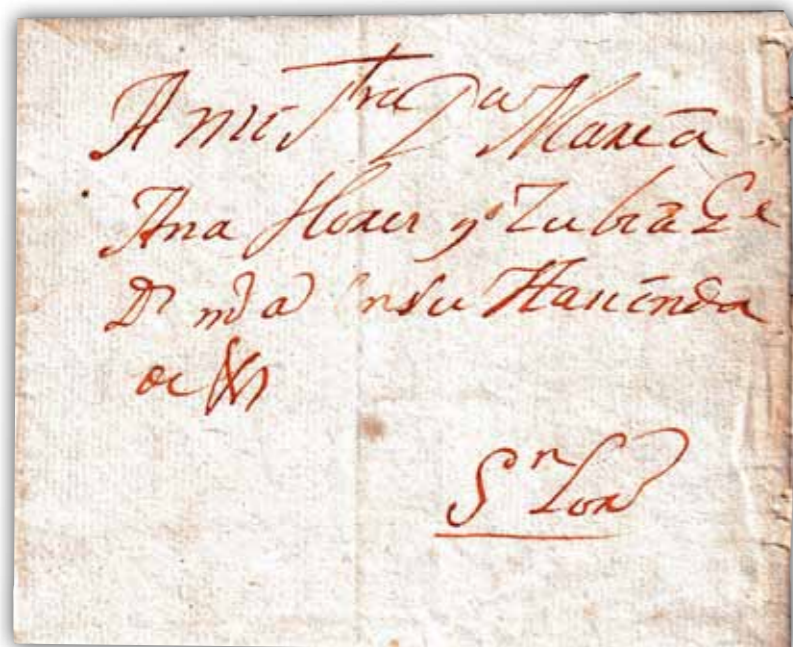 A mi Sra Da Maria
Ana Flores y Zubia Ge
De en su Hacienda
de
Sn Lor